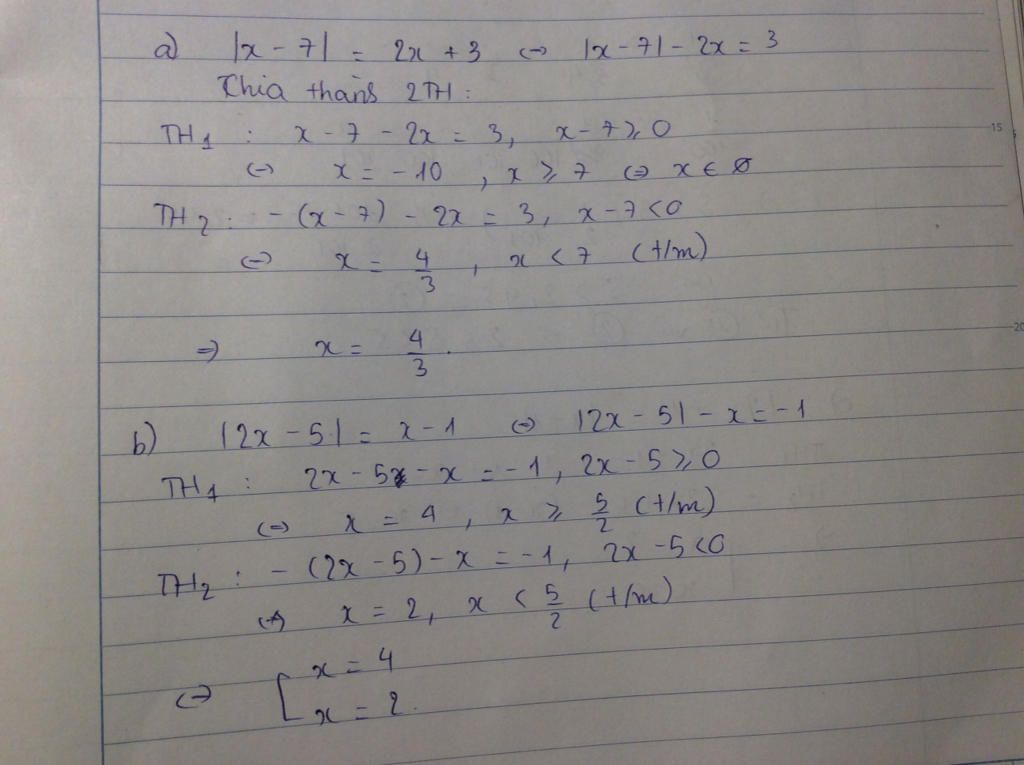 a) |x - 7| = 2x + 3 ⇔ |x - 7| - 2x = 3
Chia thành 2TH:
TH1 : x - 7 - 2x = 3, x - 7 ≥ 0
⇔ x = -10 , x ≥ 7 ⇔ x ∈ ∅
TH2 : - (x - 7) - 2x = 3, x - 7 < 0
⇔ x = 4/3 , x < 7 (t/m)
⇒ x = 4/3 .
b) |2x - 5| = x - 1 ⇔ |2x - 5| - x = -1
TH1 : 2x - 5 - x = -1, 2x - 5 ≥ 0
⇔ x = 4 , x ≥ 5/2 (t/m)
TH2 : - (2x - 5) - x = -1, 2x - 5 < 0
⇔ x = 2, x < 5/2 (t/m)
⇔ [ x = 4
x = 2.
15
20